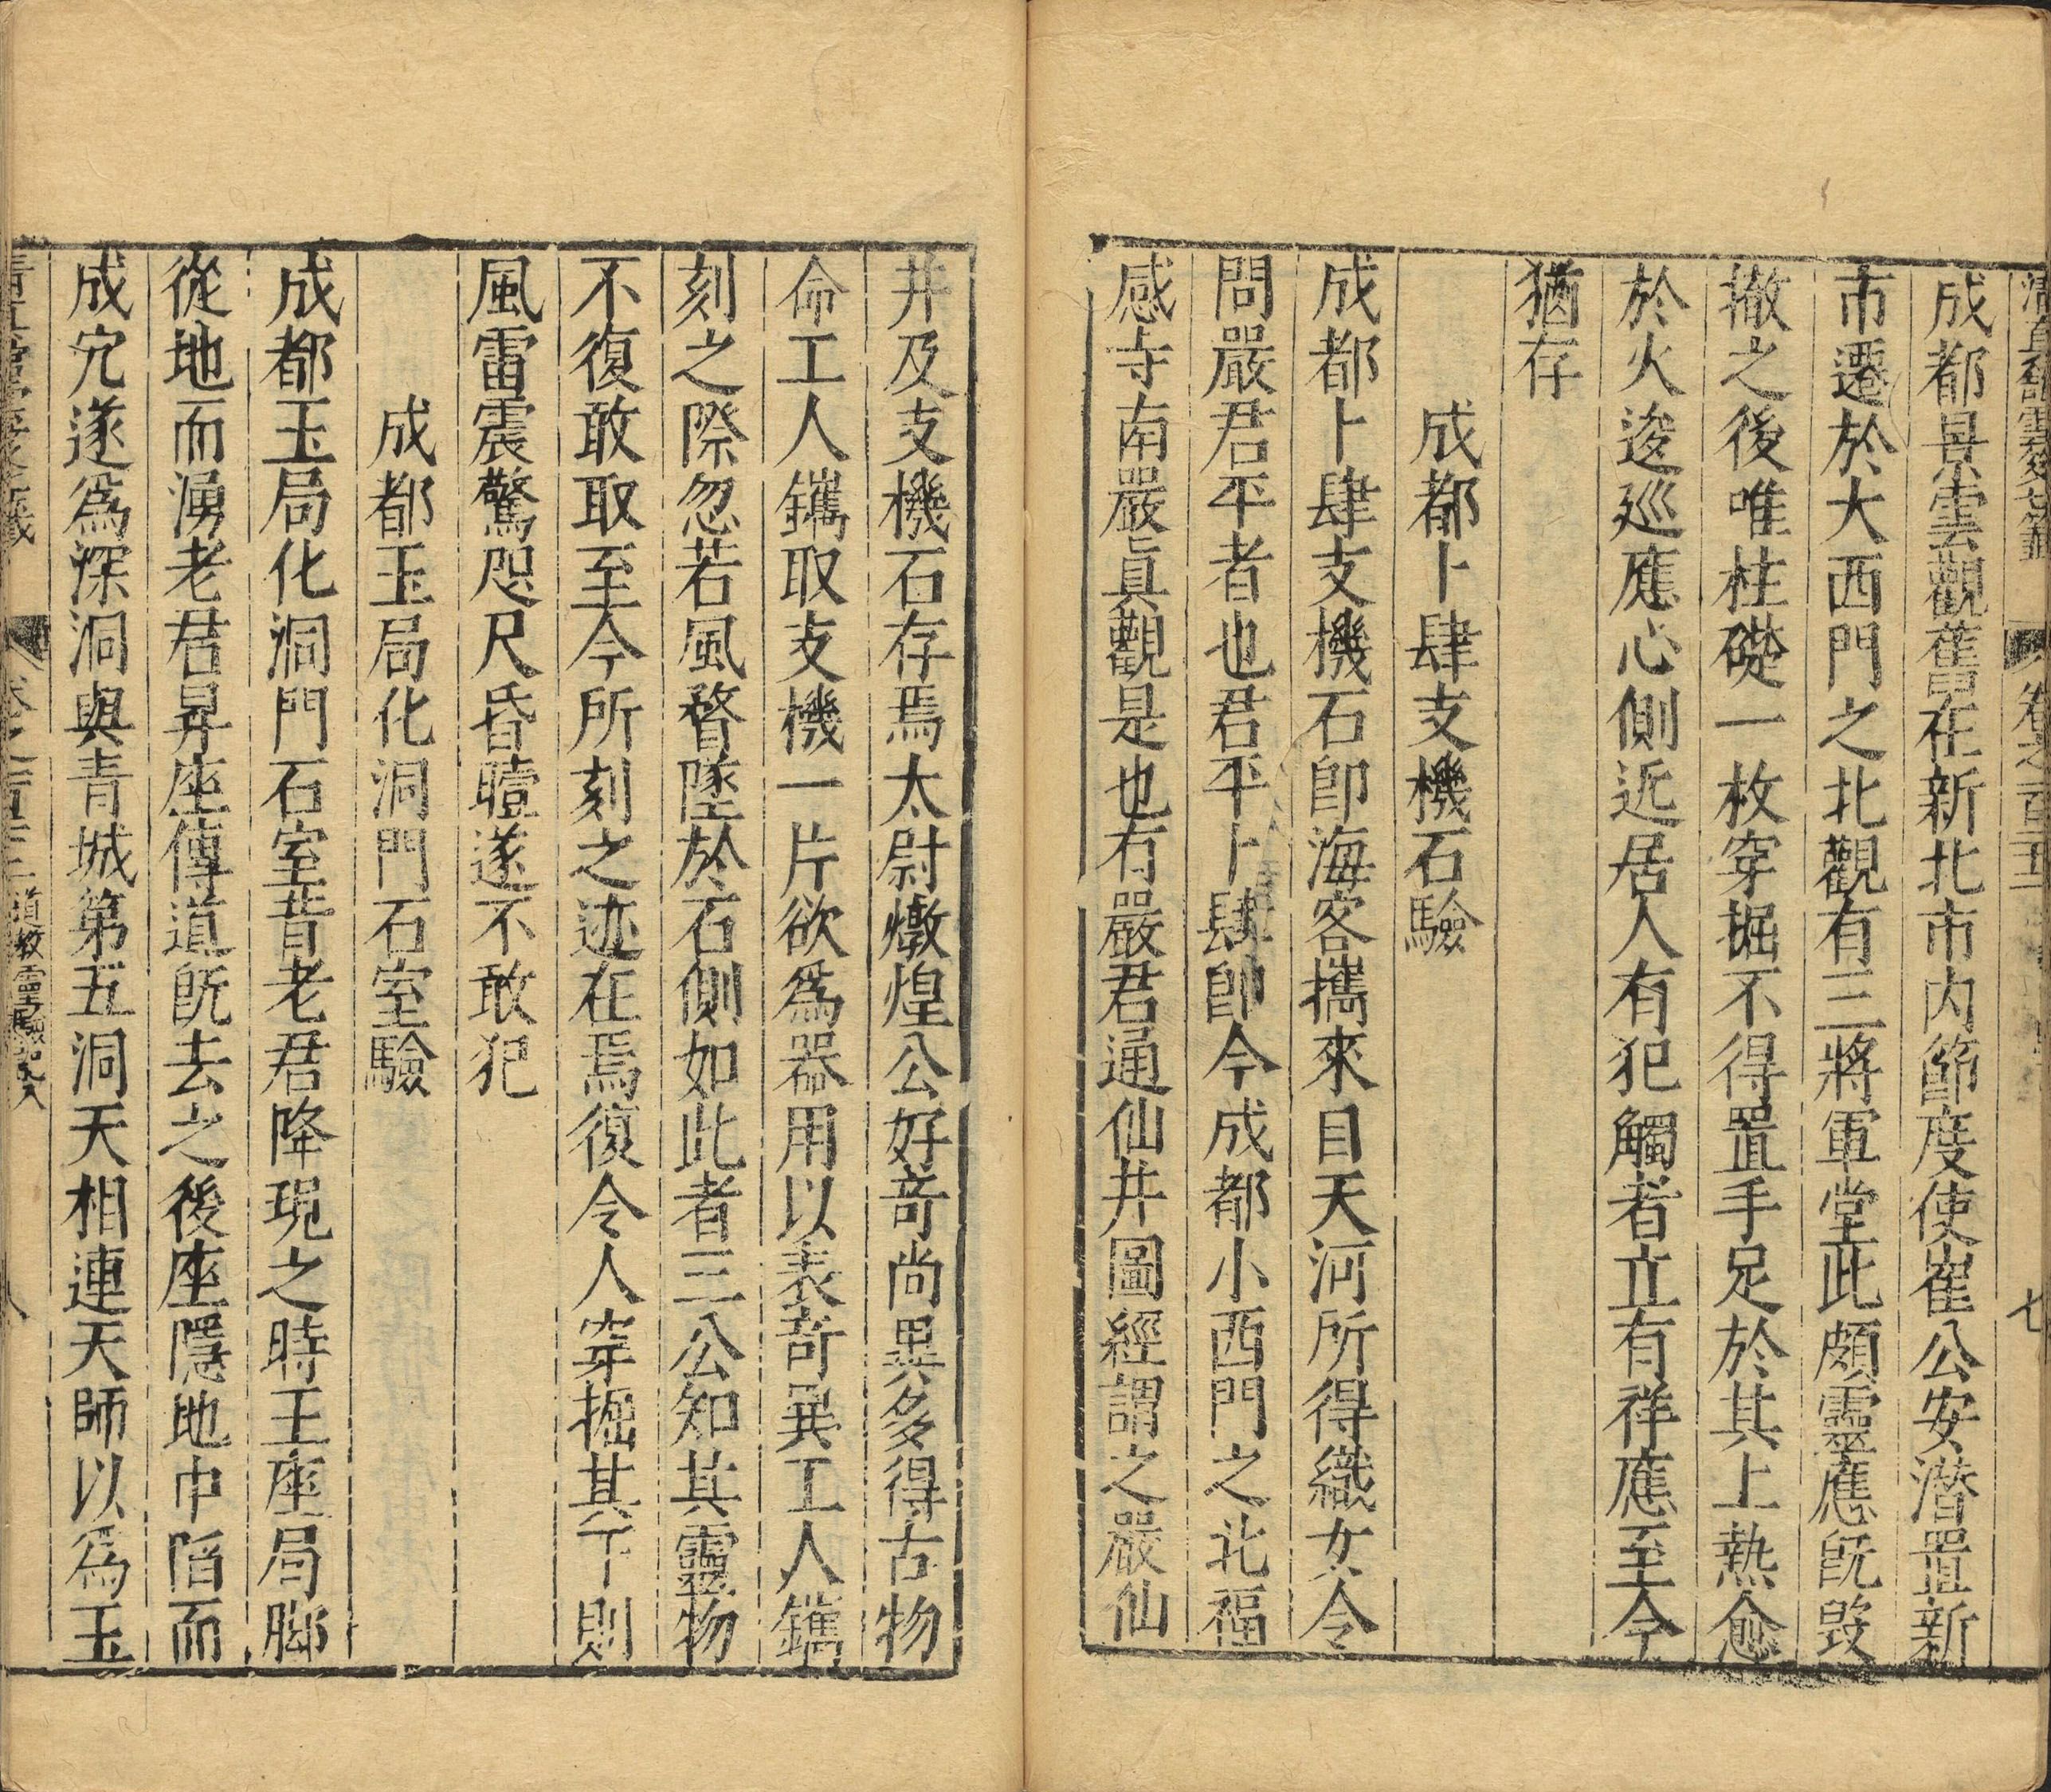 成都景雲觀舊在新北市内節度使崔公安潛置新
市遷於大西門之北觀有三將軍堂此頗靈應旣毀
撤之後唯柱礎一枚穿掘不得置手足於其上熱愈
於火逡巡應心側近居人有犯觸者立有祥應至今
猶存
成都卜肆支機石驗
成都卜肆支機石卽海客攜來自天河所得織女令
問嚴君平者也君平卜肆卽今成都小西門之北福
感寺南嚴眞觀是也有嚴君通仙井圖經謂之嚴仙
井及支機石存焉太尉燉煌公好奇尚異多得古物
命工人鐫取支機一片欲爲器用以表奇異工人鐫
刻之際忽若風瞀墜於石側如此者三公知其靈物
不復敢取至今所刻之迹在焉復令人穿掘其下則
風雷震驚咫尺昏曀遂不敢犯
成都玉局化洞門石室驗
成都玉局化洞門石室昔老君降現之時玉座局腳
從地而湧老君昇座傳道旣去之後座隱地中陷而
成穴遂爲深洞與青城第五洞天相連天師以爲玉